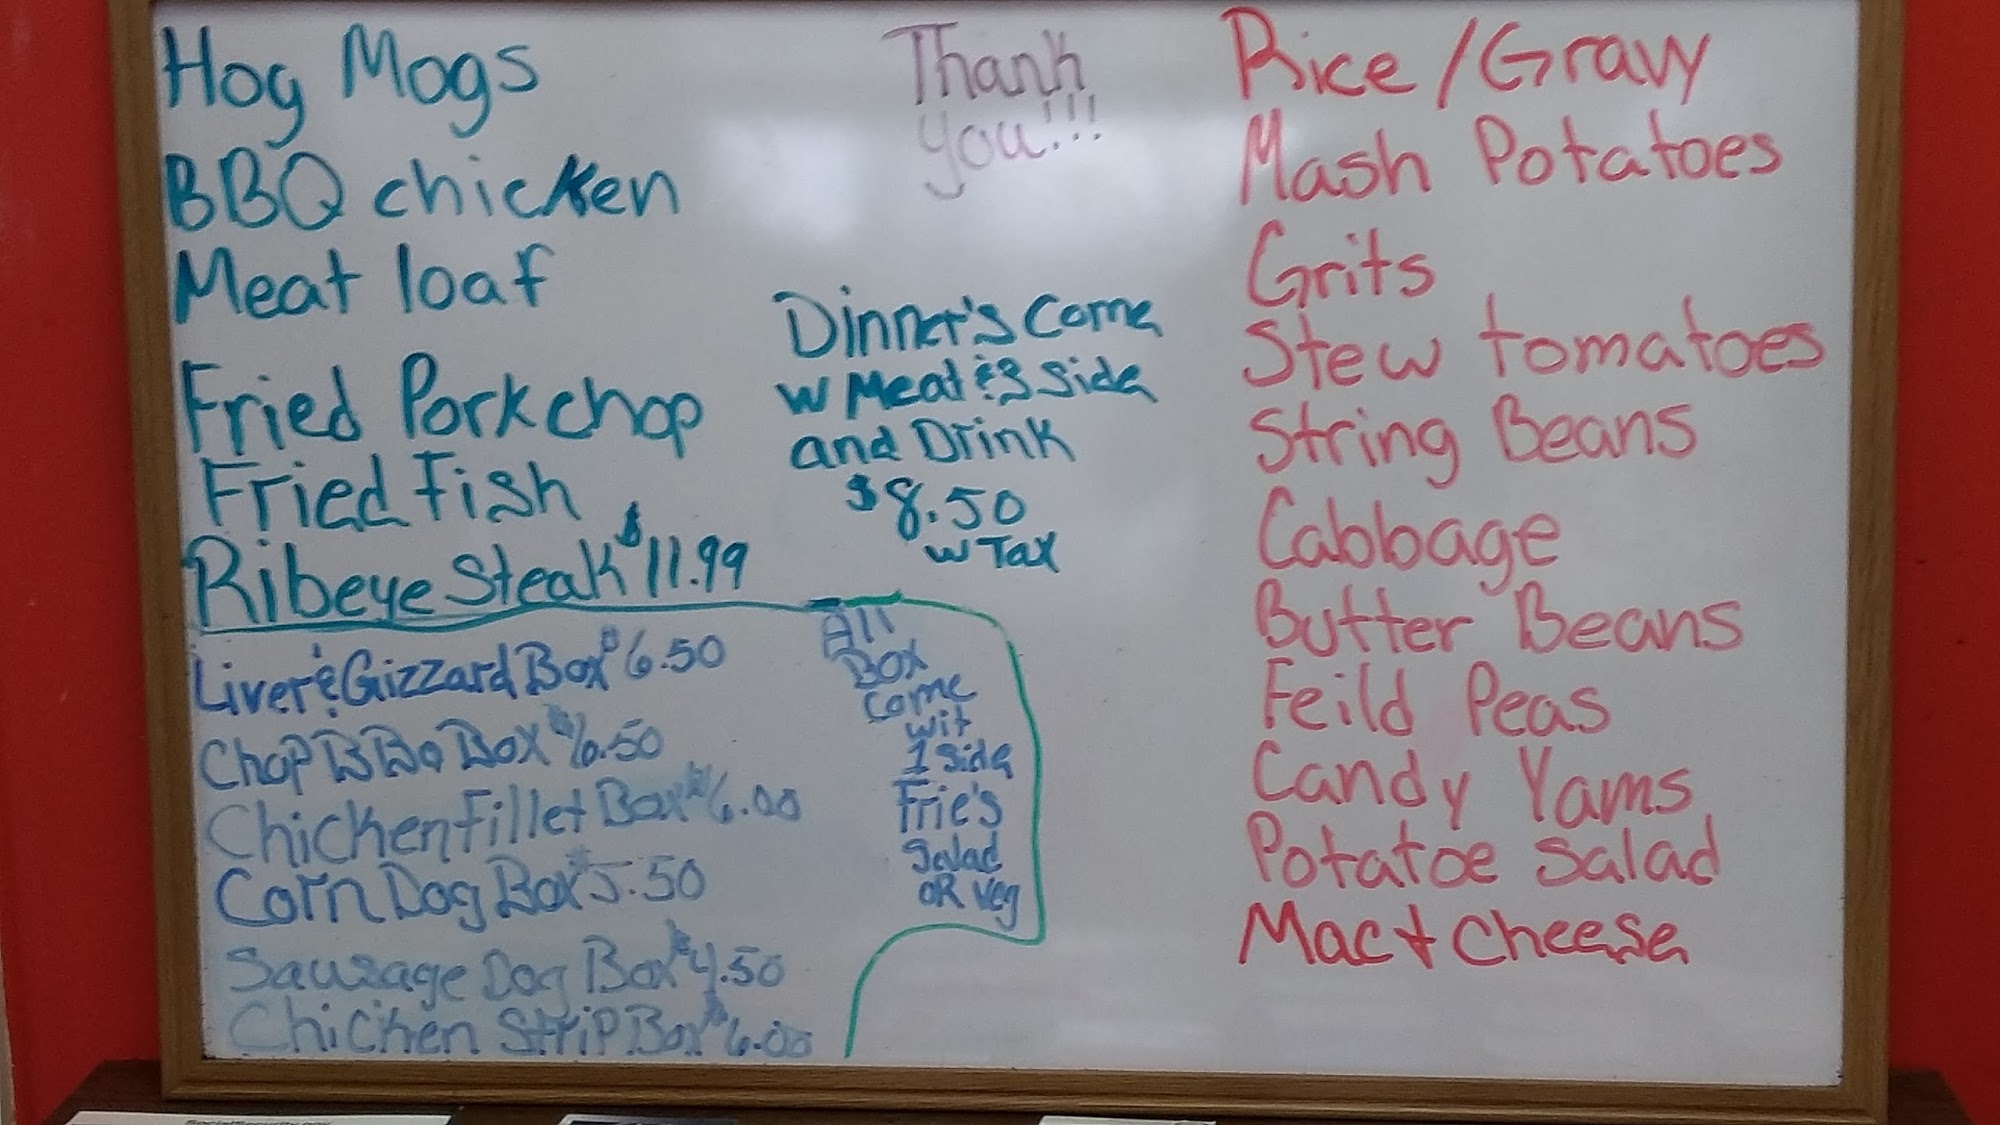 Hog Mogs
BBQ chicken
Meat loaf
Fried Porkchop
Fried Fish
Ribeye Steak $11.99
Liver & Gizzard Box $6.50
Chop BBQ Box $6.50
Chicken Fillet Box $6.00
Corn Dog Box $5.50
Sausage Dog Box $4.50
Chicken Strip Box $6.00
Thank
you!!!
Dinner's Come
w Meat & 3 Side
and Drink
$8.50
w Tax
All
Box
Come
wit
1 Side
Frie's
Salad
OR Veg
Rice/Gravy
Mash Potatoes
Grits
Stew tomatoes
String Beans
Cabbage
Butter Beans
Feild Peas
Candy Yams
Potatoe Salad
Mac + Cheese